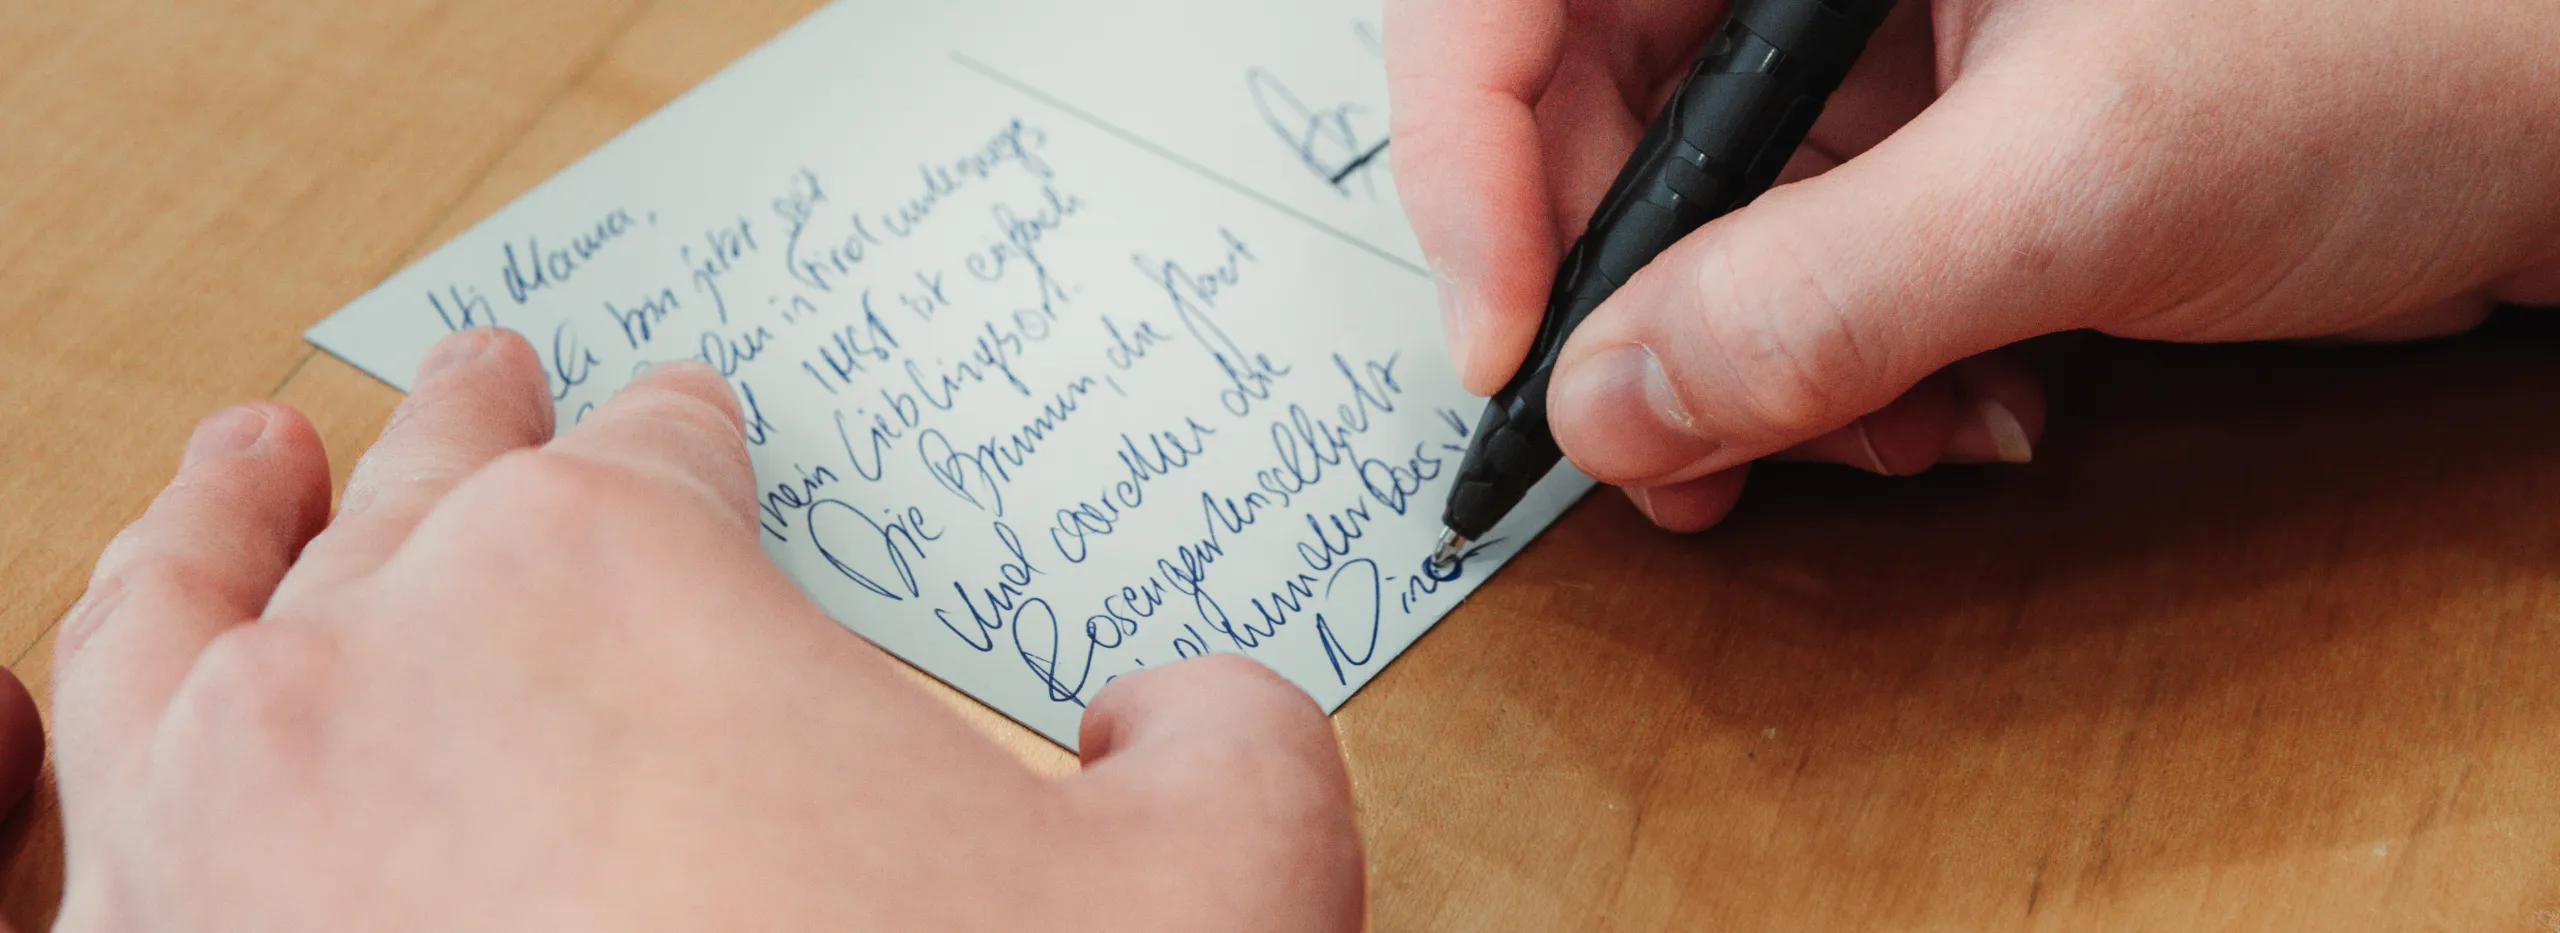 Hi Mama,
ich bin jetzt seit
in Tirol unterwegs
IMST ist einfach
mein Lieblingsort.
Die Brunnen, die Stadt
und vor allem die
Rosengartenschlucht
sind wunderbar
Nina
An